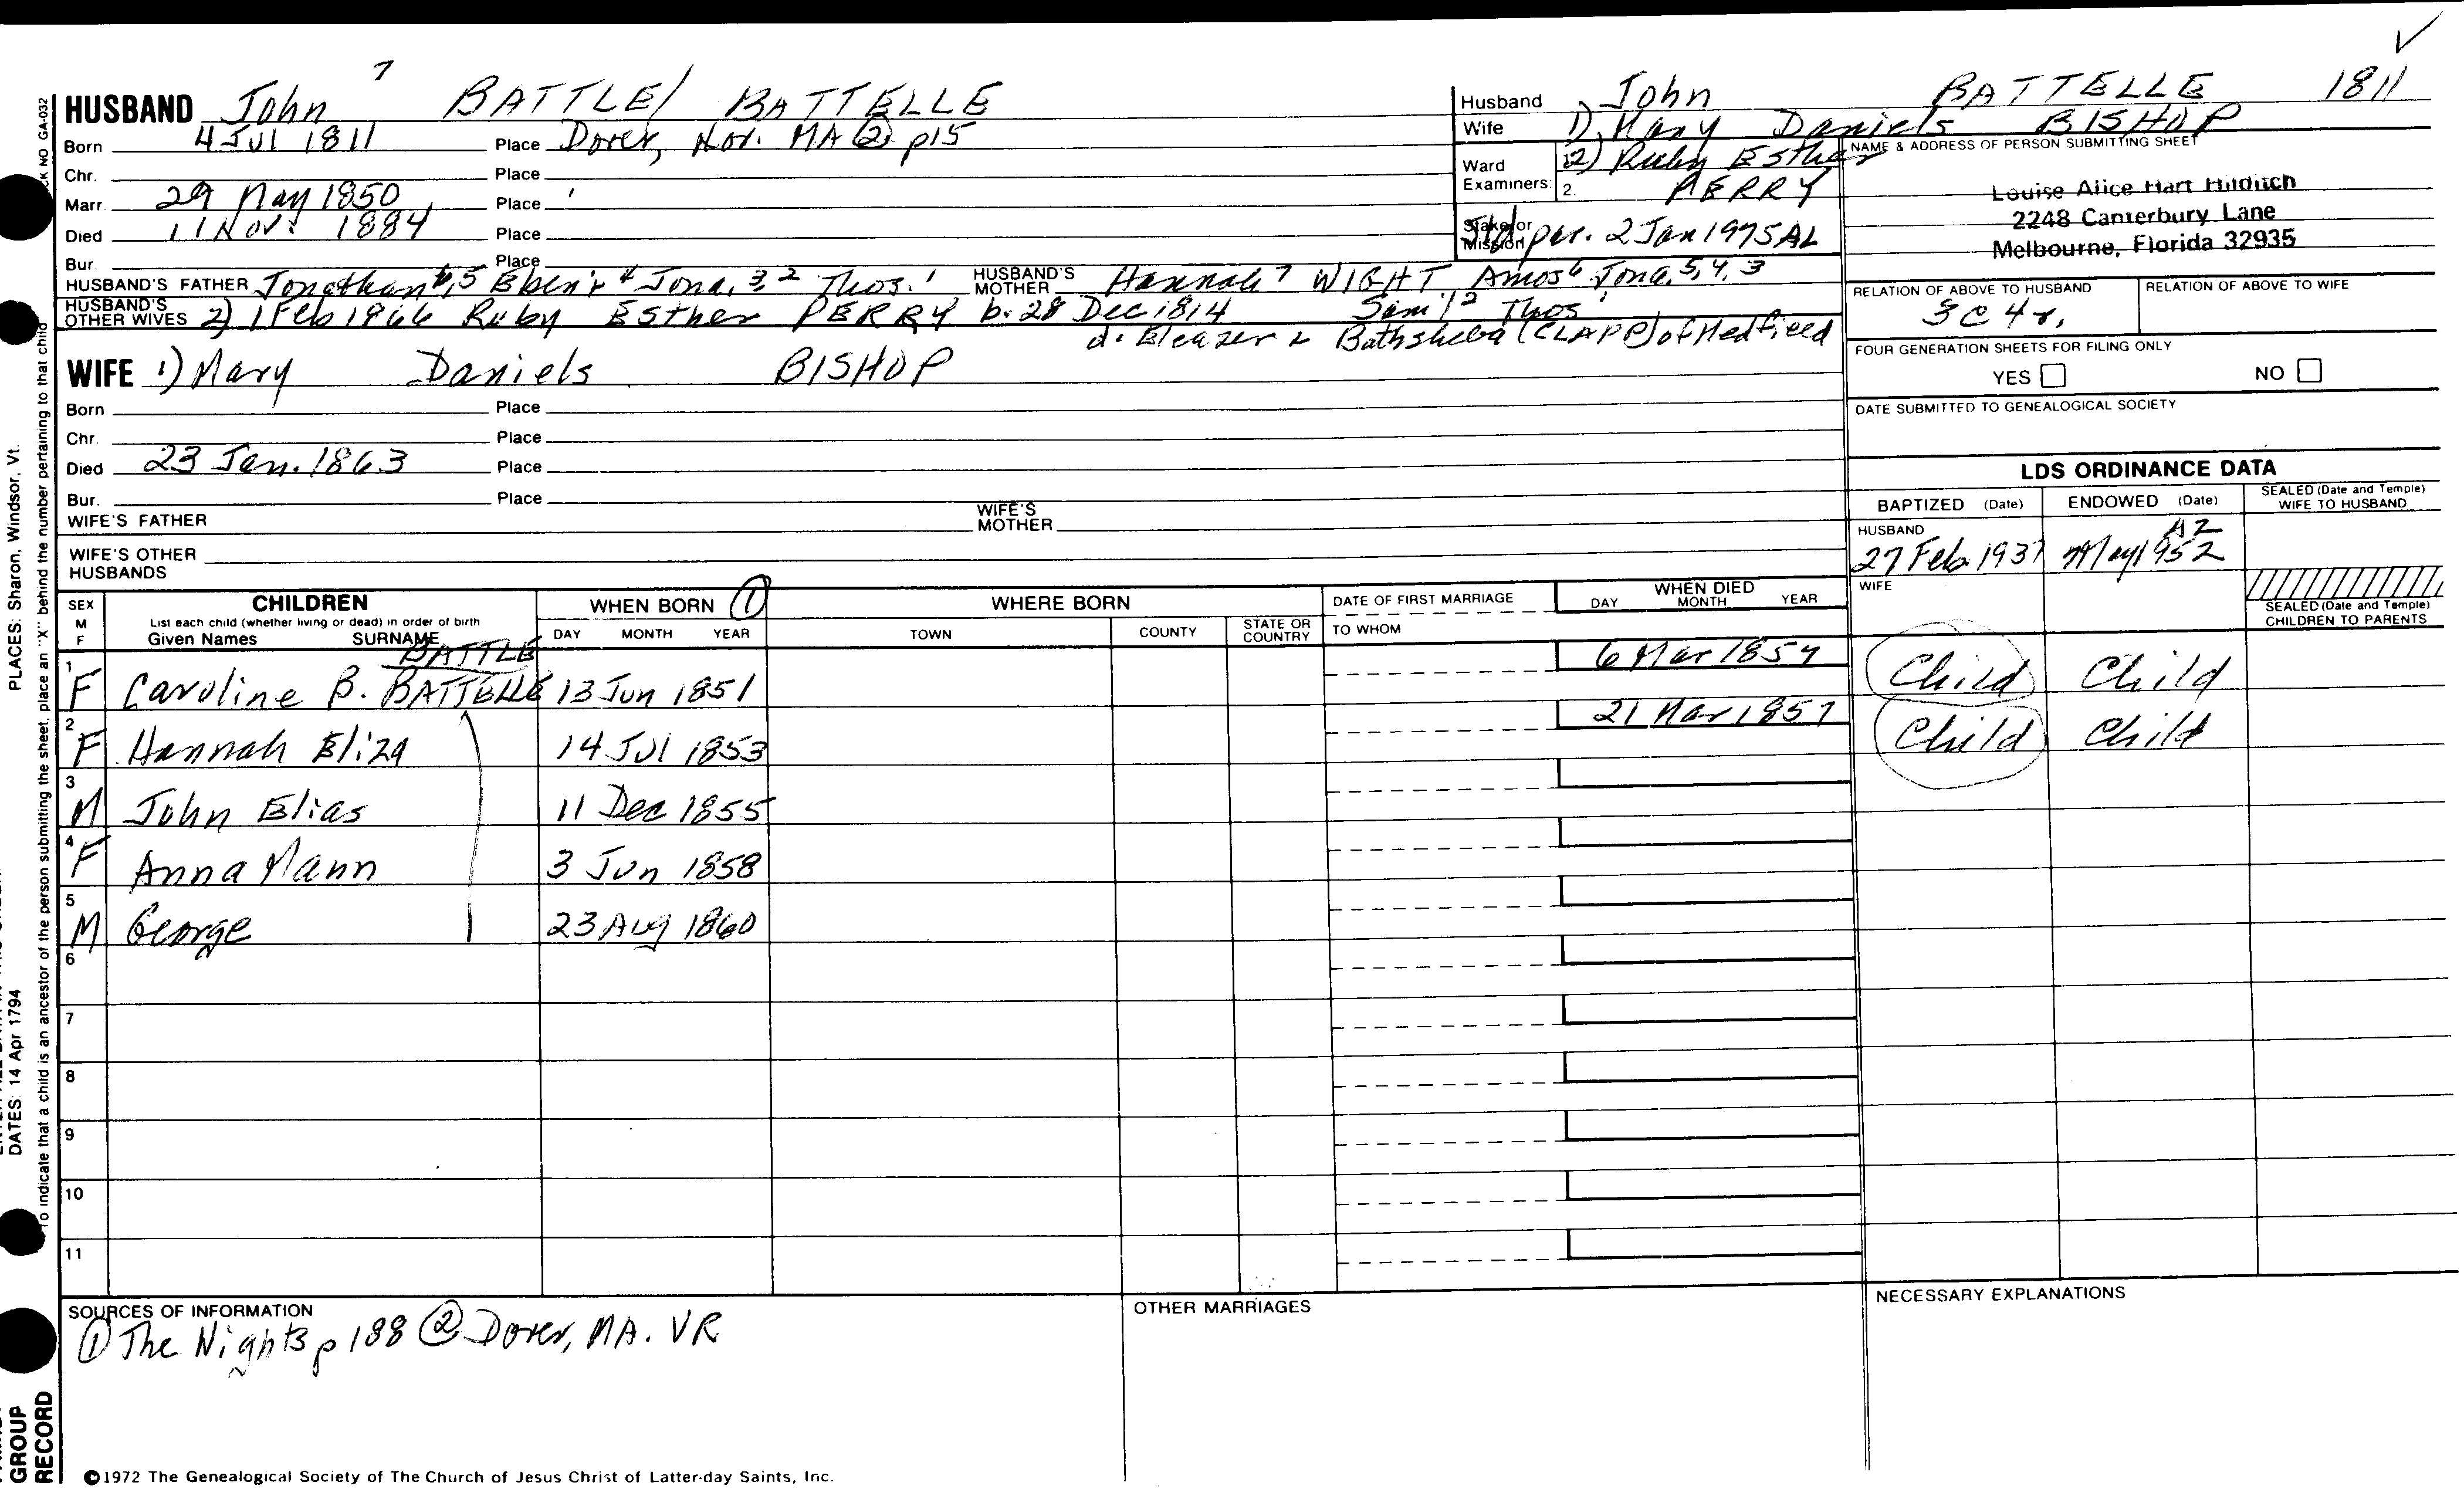 HUSBAND John 7 BATTLE/ BATTELLE
Born 4 Jul 1811 Place Dover, Nor. MA (2) p15
Chr. Place
Marr. 29 May 1850 Place
Died 11 Nov. 1884 Place
Bur. Place
HUSBAND'S FATHER Jonathan 6,5 Eben'r 4 Jona. 3,2 Thos. 1 HUSBAND'S MOTHER Hannah 7 WIGHT Amos 6 Jona. 5, 4, 3
HUSBAND'S OTHER WIVES 2) 1 Feb 1866 Ruby Esther PERRY b. 28 Dec 1814 Sam'l 2 Thos 1
d. Eleazer & Bathsheba (CLAPP) of Medfield
WIFE 1) Mary Daniels BISHOP
Born Place
Chr. Place
Died 23 Jan. 1863 Place
Bur. Place
WIFE'S FATHER WIFE'S MOTHER
WIFE'S OTHER HUSBANDS
Husband John BATTELLE 1811
Wife 1) Mary Daniels BISHOP
Ward Examiners: 2) Ruby Esther
2. PERRY
Stake or Mission per. 2 Jan 1975 AL
NAME & ADDRESS OF PERSON SUBMITTING SHEET
Louise Alice Hart Hilditch
2248 Canterbury Lane
Melbourne, Florida 32935
RELATION OF ABOVE TO HUSBAND RELATION OF ABOVE TO WIFE
3C4r.
FOUR GENERATION SHEETS FOR FILING ONLY
YES NO
DATE SUBMITTED TO GENEALOGICAL SOCIETY
LDS ORDINANCE DATA
BAPTIZED (Date) ENDOWED (Date) SEALED (Date and Temple) WIFE TO HUSBAND
HUSBAND AZ
27 Feb 1937 May 1952
WIFE
SEALED (Date and Temple) CHILDREN TO PARENTS
SEX M F CHILDREN WHEN BORN (1) WHERE BORN DATE OF FIRST MARRIAGE WHEN DIED
List each child (whether living or dead) in order of birth
Given Names SURNAME DAY MONTH YEAR TOWN COUNTY STATE OR COUNTRY TO WHOM DAY MONTH YEAR
BATTLE
1 F Caroline B. BATTELLE 13 Jun 1851 6 Mar 1857 Child Child
2 F Hannah Eliza 14 Jul 1853 21 Mar 1857 Child Child
3 M John Elias 11 Dec 1855
4 F Anna Mann 3 Jun 1858
5 M George 23 Aug 1860
6
7
8
9
10
11
SOURCES OF INFORMATION OTHER MARRIAGES NECESSARY EXPLANATIONS
(1) The Wights p 188 (2) Dover, MA. VR
©1972 The Genealogical Society of The Church of Jesus Christ of Latter-day Saints, Inc.
GROUP
RECORD
DATES: 14 Apr 1794
PLACES: Sharon, Windsor, Vt.
To indicate that a child is an ancestor of the person submitting the sheet, place an "X" behind the number pertaining to that child
NO GA-032